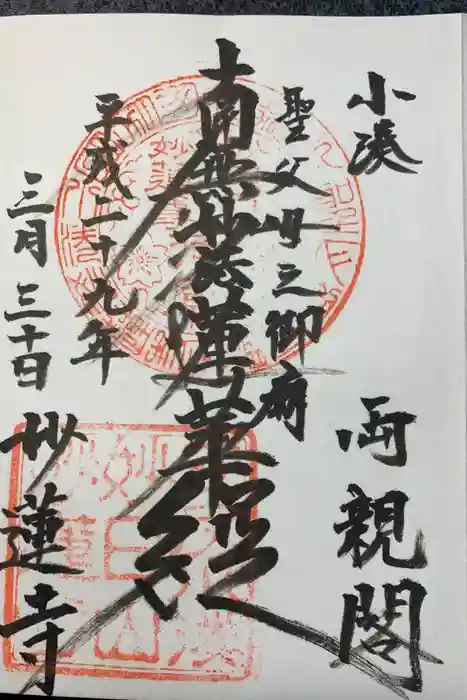 小湊 両親閣
聖父母之御廟
南無妙法蓮華経
平成二十九年
三月三十日
妙蓮寺